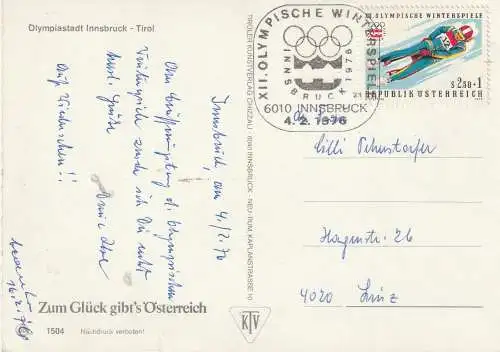 Olympiastadt Innsbruck - Tirol
Innsbruck, am 4./2.76
Von der Eröffnung d. Olympischen
Winterspiele sende ich Dir recht
herzl. Grüße
Auf Wiedersehen!!
16.2.76
Zum Glück gibt's Österreich
1504 Nachdruck verboten!
TIROLER KUNSTVERLAG CHIZZALI · 6010 INNSBRUCK - NEU-RUM KAPLANSTRASSE 10
KTV
XII. OLYMPISCHE WINTERSPIELE
INNSBRUCK 1976
6010 INNSBRUCK
4.2.1976
XII. OLYMPISCHE WINTERSPIELE
S 2.50+1
REPUBLIK ÖSTERREICH
Lilli
26
4020 Linz